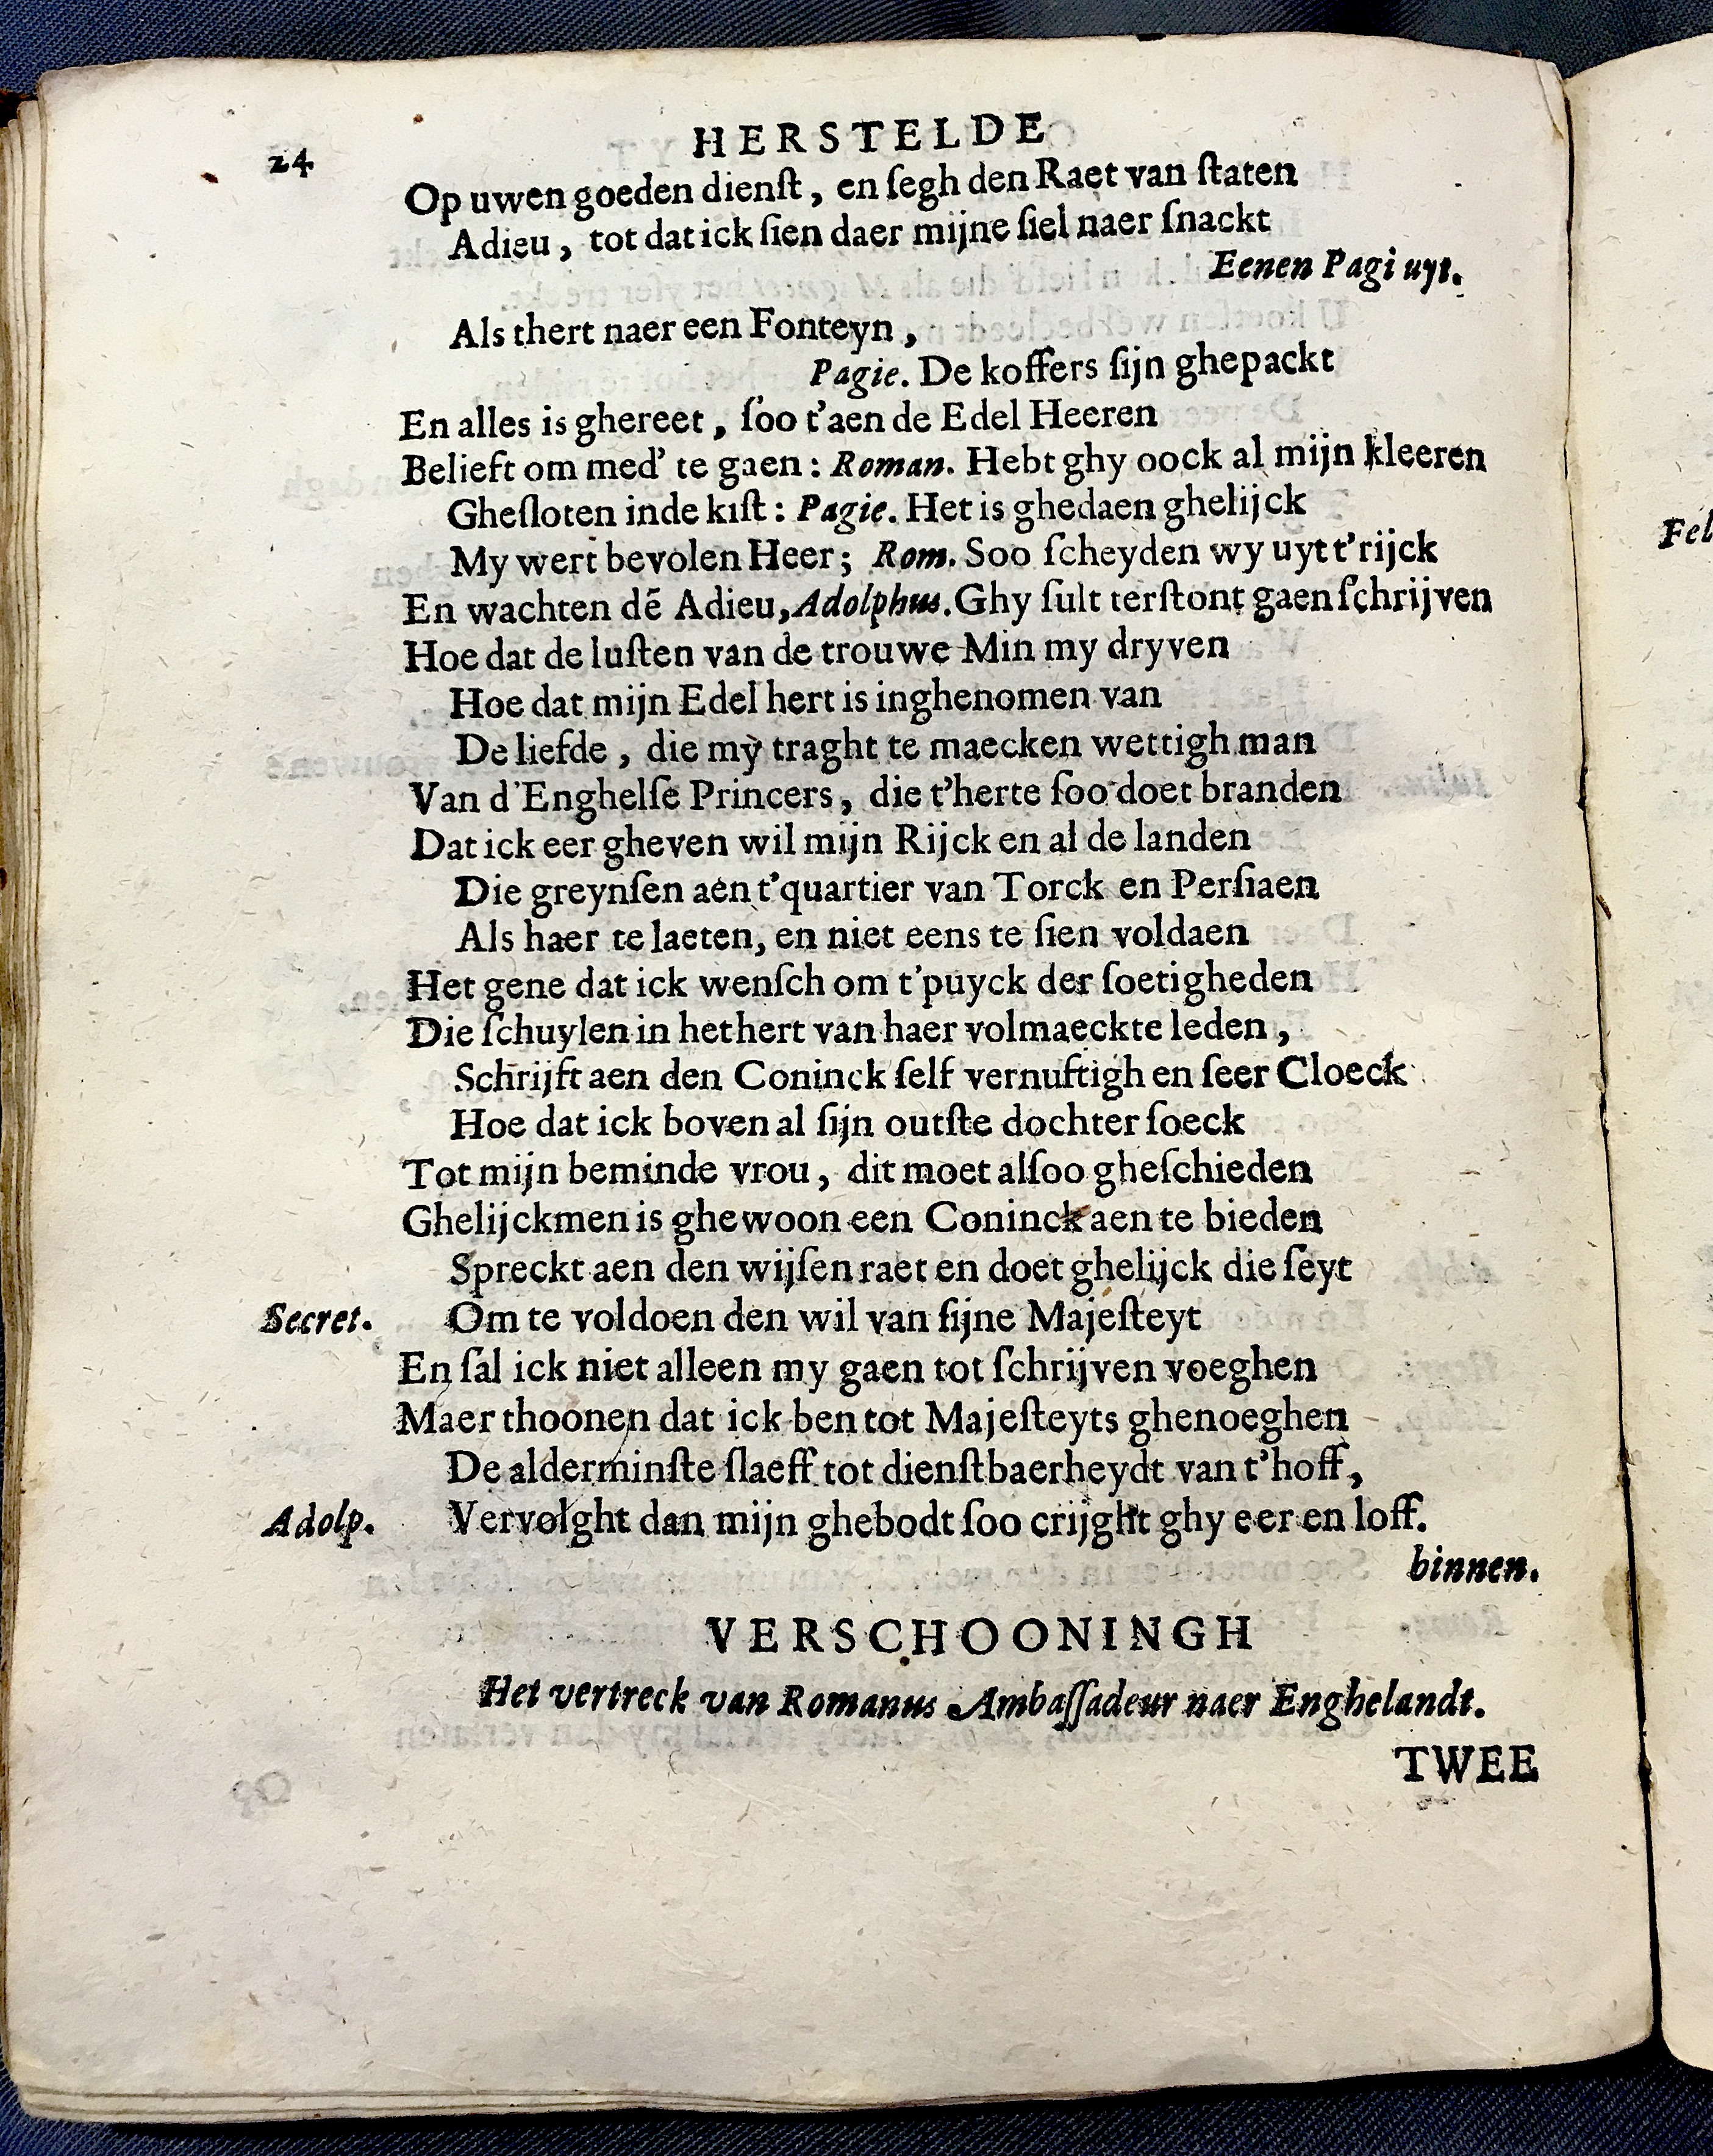 24
HERSTELDE
Op uwen goeden dienſt, en ſegh den Raet van ſtaten
Adieu, tot dat ick ſien daer mijne ſiel naer ſnackt
Eenen Pagi uyt.
Als thert naer een Fonteyn,
Pagie. De koffers ſijn ghepackt
En alles is ghereet, ſoo t'aen de Edel Heeren
Belieft om med' te gaen: Roman. Hebt ghy oock al mijn kleeren
Gheſloten inde kiſt: Pagie. Het is ghedaen ghelijck
My wert bevolen Heer; Rom. Soo ſcheyden wy uyt t'rijck
En wachten dē Adieu, Adolphus. Ghy ſult terſtont gaen ſchrijven
Hoe dat de luſten van de trouwe Min my dryven
Hoe dat mijn Edel hert is inghenomen van
De liefde, die my traght te maecken wettigh man
Van d'Enghelſe Princers, die t'herte ſoo doet branden
Dat ick eer gheven wil mijn Rijck en al de landen
Die greynſen aen t'quartier van Torck en Perſiaen
Als haer te laeten, en niet eens te ſien voldaen
Het gene dat ick wenſch om t'puyck der ſoetigheden
Die ſchuylen in het hert van haer volmaeckte leden,
Schrijft aen den Coninck ſelf vernuftigh en ſeer Cloeck
Hoe dat ick boven al ſijn outſte dochter ſoeck
Tot mijn beminde vrou, dit moet alſoo gheſchieden
Ghelijckmen is ghewoon een Coninck aen te bieden
Spreckt aen den wijſen raet en doet ghelijck die ſeyt
Secret. Om te voldoen den wil van ſijne Majeſteyt
En ſal ick niet alleen my gaen tot ſchrijven voeghen
Maer thoonen dat ick ben tot Majeſteyts ghenoeghen
De alderminſte ſlaeff tot dienſtbaerheydt van t'hoff,
Adolp. Vervolght dan mijn ghebodt ſoo crijght ghy eer en loff.
binnen.
VERSCHOONINGH
Het vertreck van Romanus Ambaſſadeur naer Enghelandt.
TWEE
Fel